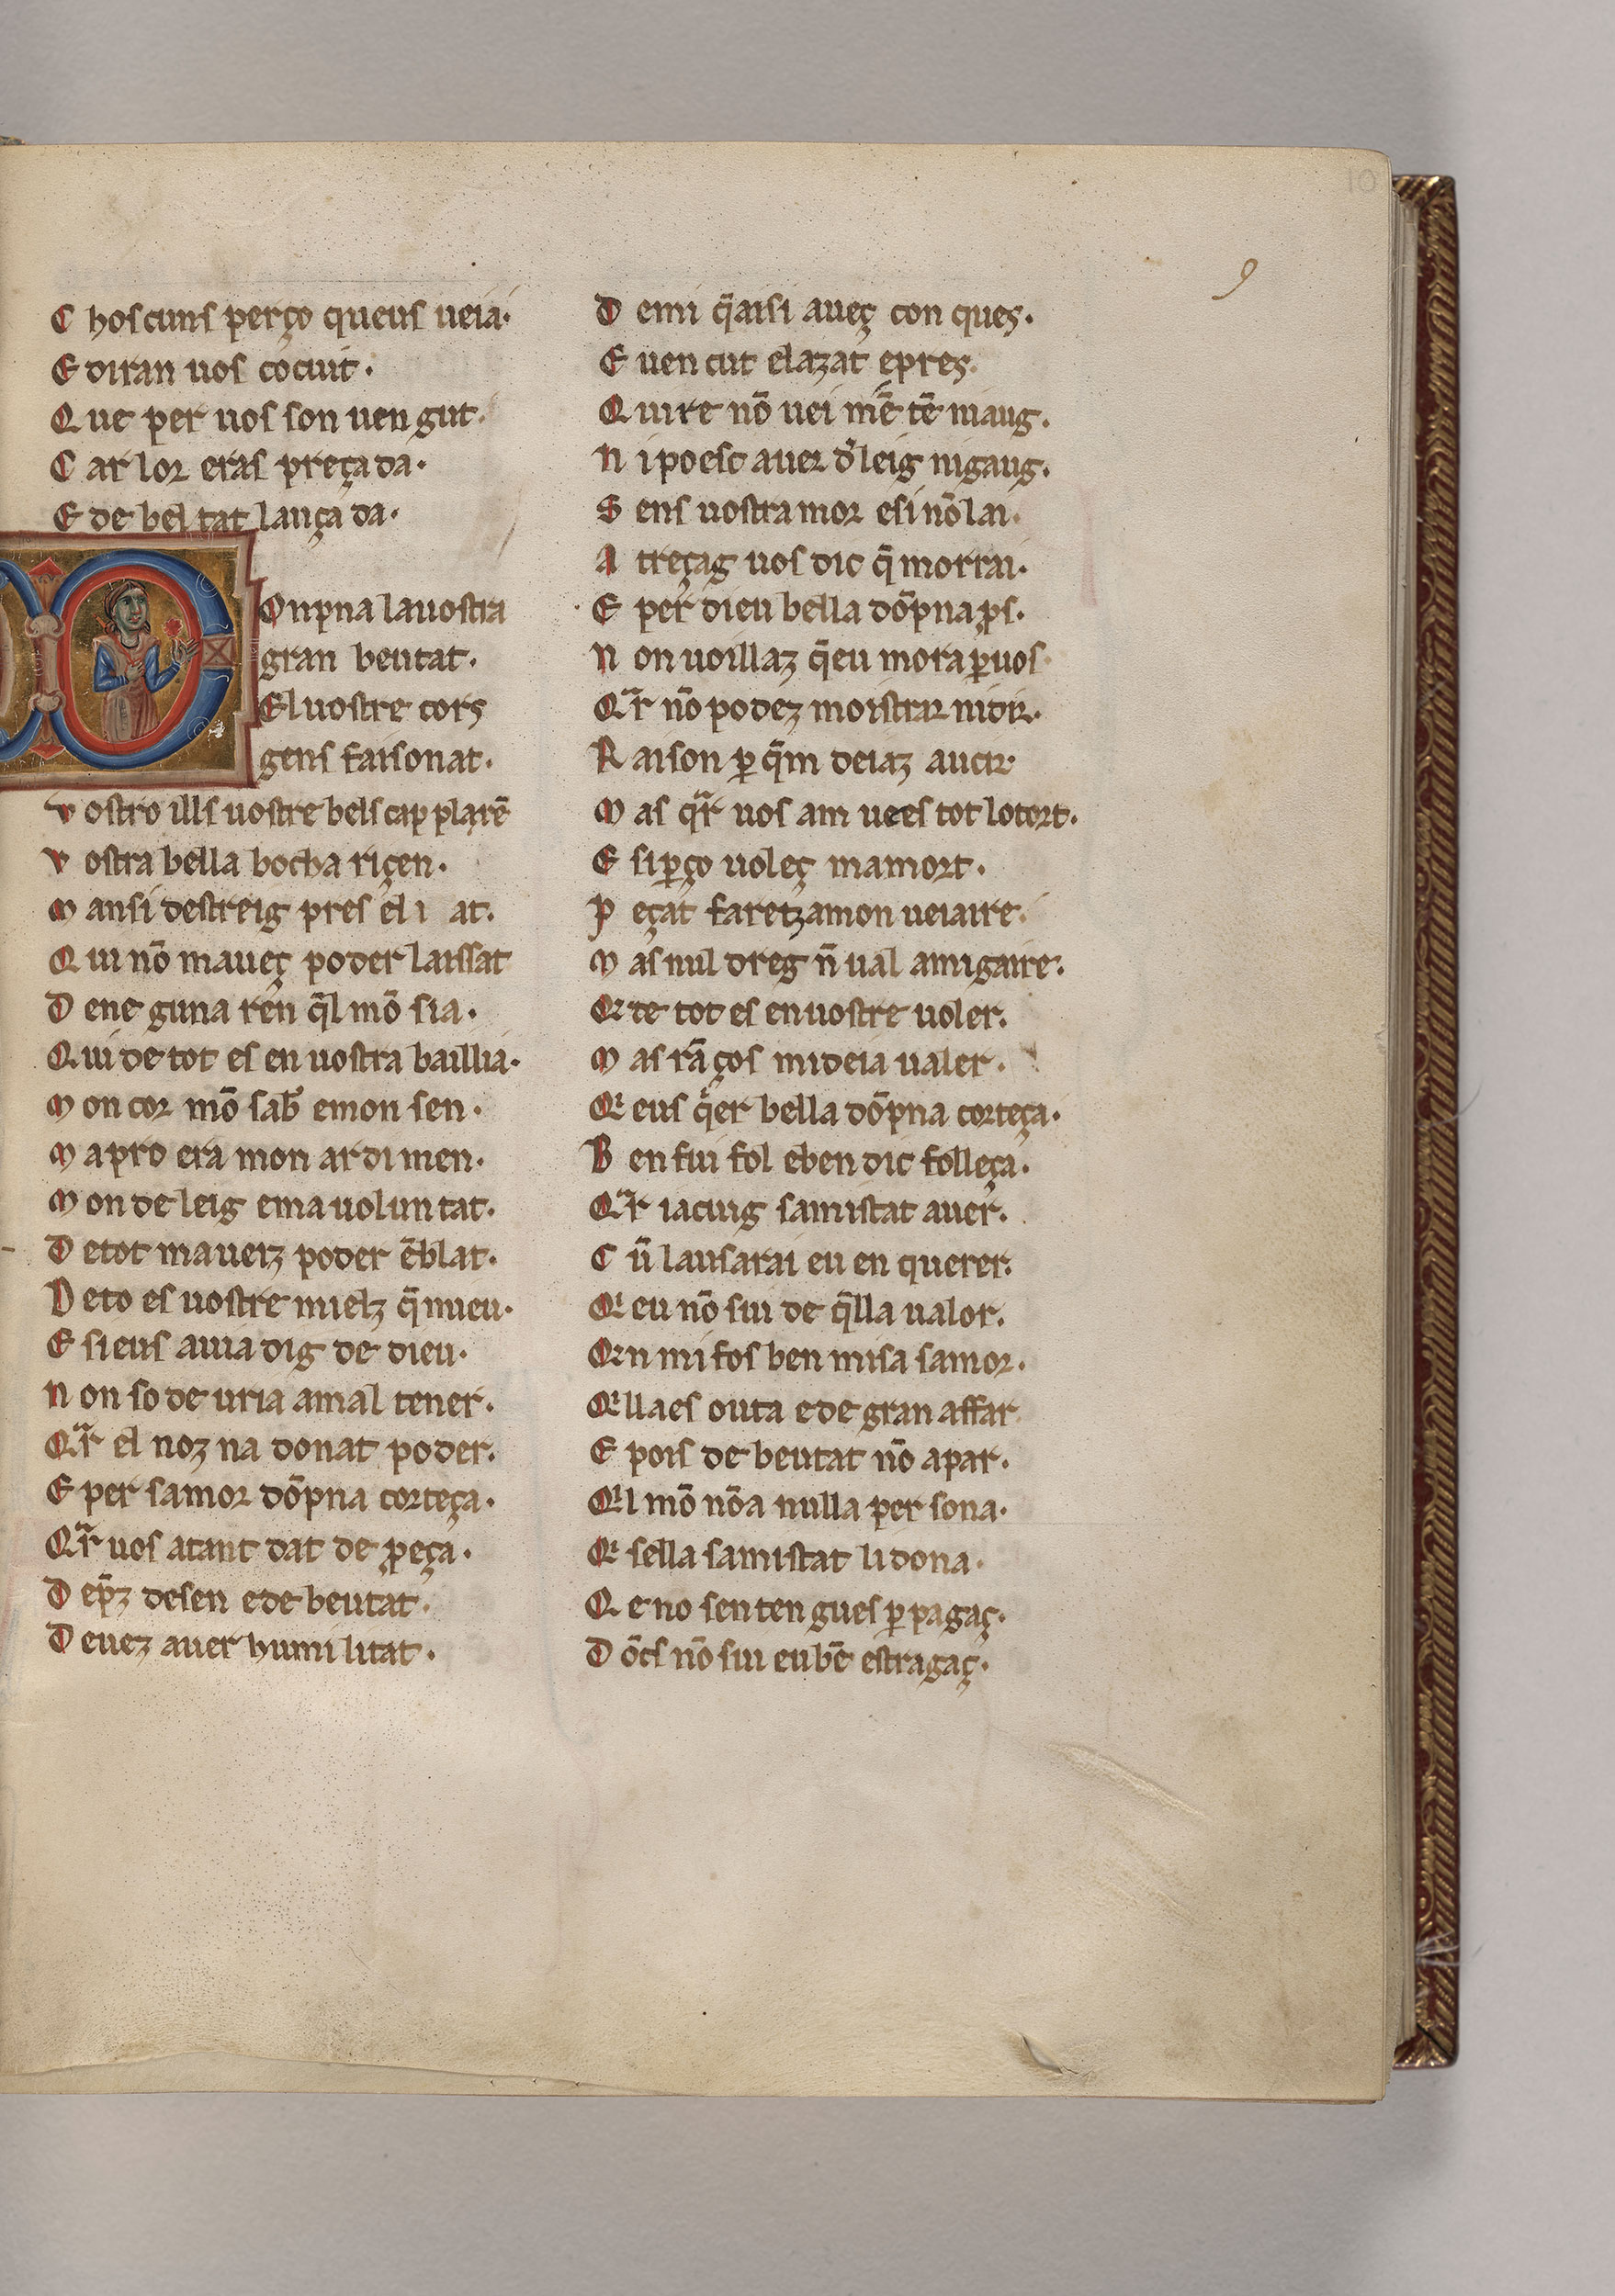 10
9
C hoscuns perço queus ueia·
E diran uos cocuit·
Q ue per uos son uen gut·
C ar lor eras preçada·
E de bel tat lança da·
Onpna la uostra
gran beutat·
El uostre cors
gens faisonat·
V ostro ills uostre bels cap plaçẽ
V ostra bella bocha riçen·
M ansi destreig pres el i at·
Q ui nõ maueç poder laissat
D ene guna ren q̃l mõ sia·
Q ui de tot es en uostra baillia·
M on cor mõ sab̃ emon sen·
M a pro era mon ardimen·
M on de leig ema uolun tat·
D etot mauetz poder ẽblat·
D eto es uostre mielz q̃ mieu·
E sieus auia dig de dieu·
N on so de uria amal tener·
Qᷓr el noz na donat poder·
E per samor dõpna corteça·
Qᷓr uos atant dat de ꝓeça·
D ep̃z desen ede beutat·
D euez auer humi litat·
D emi q̃aisi aueç con ques·
E uen cut elazat epres·
Q uire nõ uei mẽ tẽ niaug·
N i poesc auer d̃leig nigaug·
S ens uostramor esi nõ lai·
A treçag uos dic q̃ morrai·
E per dieu bella dõpna ꝓs·
N on uoillaz q̃eu mora ꝑuos·
Qᷓr nõ podez moistrar nidir·
R aison ꝑ q̃m deiaz aucir·
M as qᷓr uos am uees tot lotort·
E siꝑço uoleç mamort·
P eçat faretz amon ueiaire·
M as nul dreg ñ ual amigaire·
Qͥ te tot es en uostre uoler·
M as rãços mideia ualer·
Qͥ eus q̃er bella dõpna corteça·
B en fui fol eben dic folleça·
Qᷓr iacuig samistat auer·
C ũ lausarai eu en querer·
Qͥ eu nõ sui de q̃lla ualor·
Qͥ n mi fos ben misa samor·
Qͥ lla es outa ede gran affar
E pois de beutat nõ a par·
Qͥ l mõ nõa nulla per sona·
Qͥ sella samistat li dona·
Q e no sen ten gues ꝑ pagaç·
D õcs nõ sui eu bẽ estragaç·